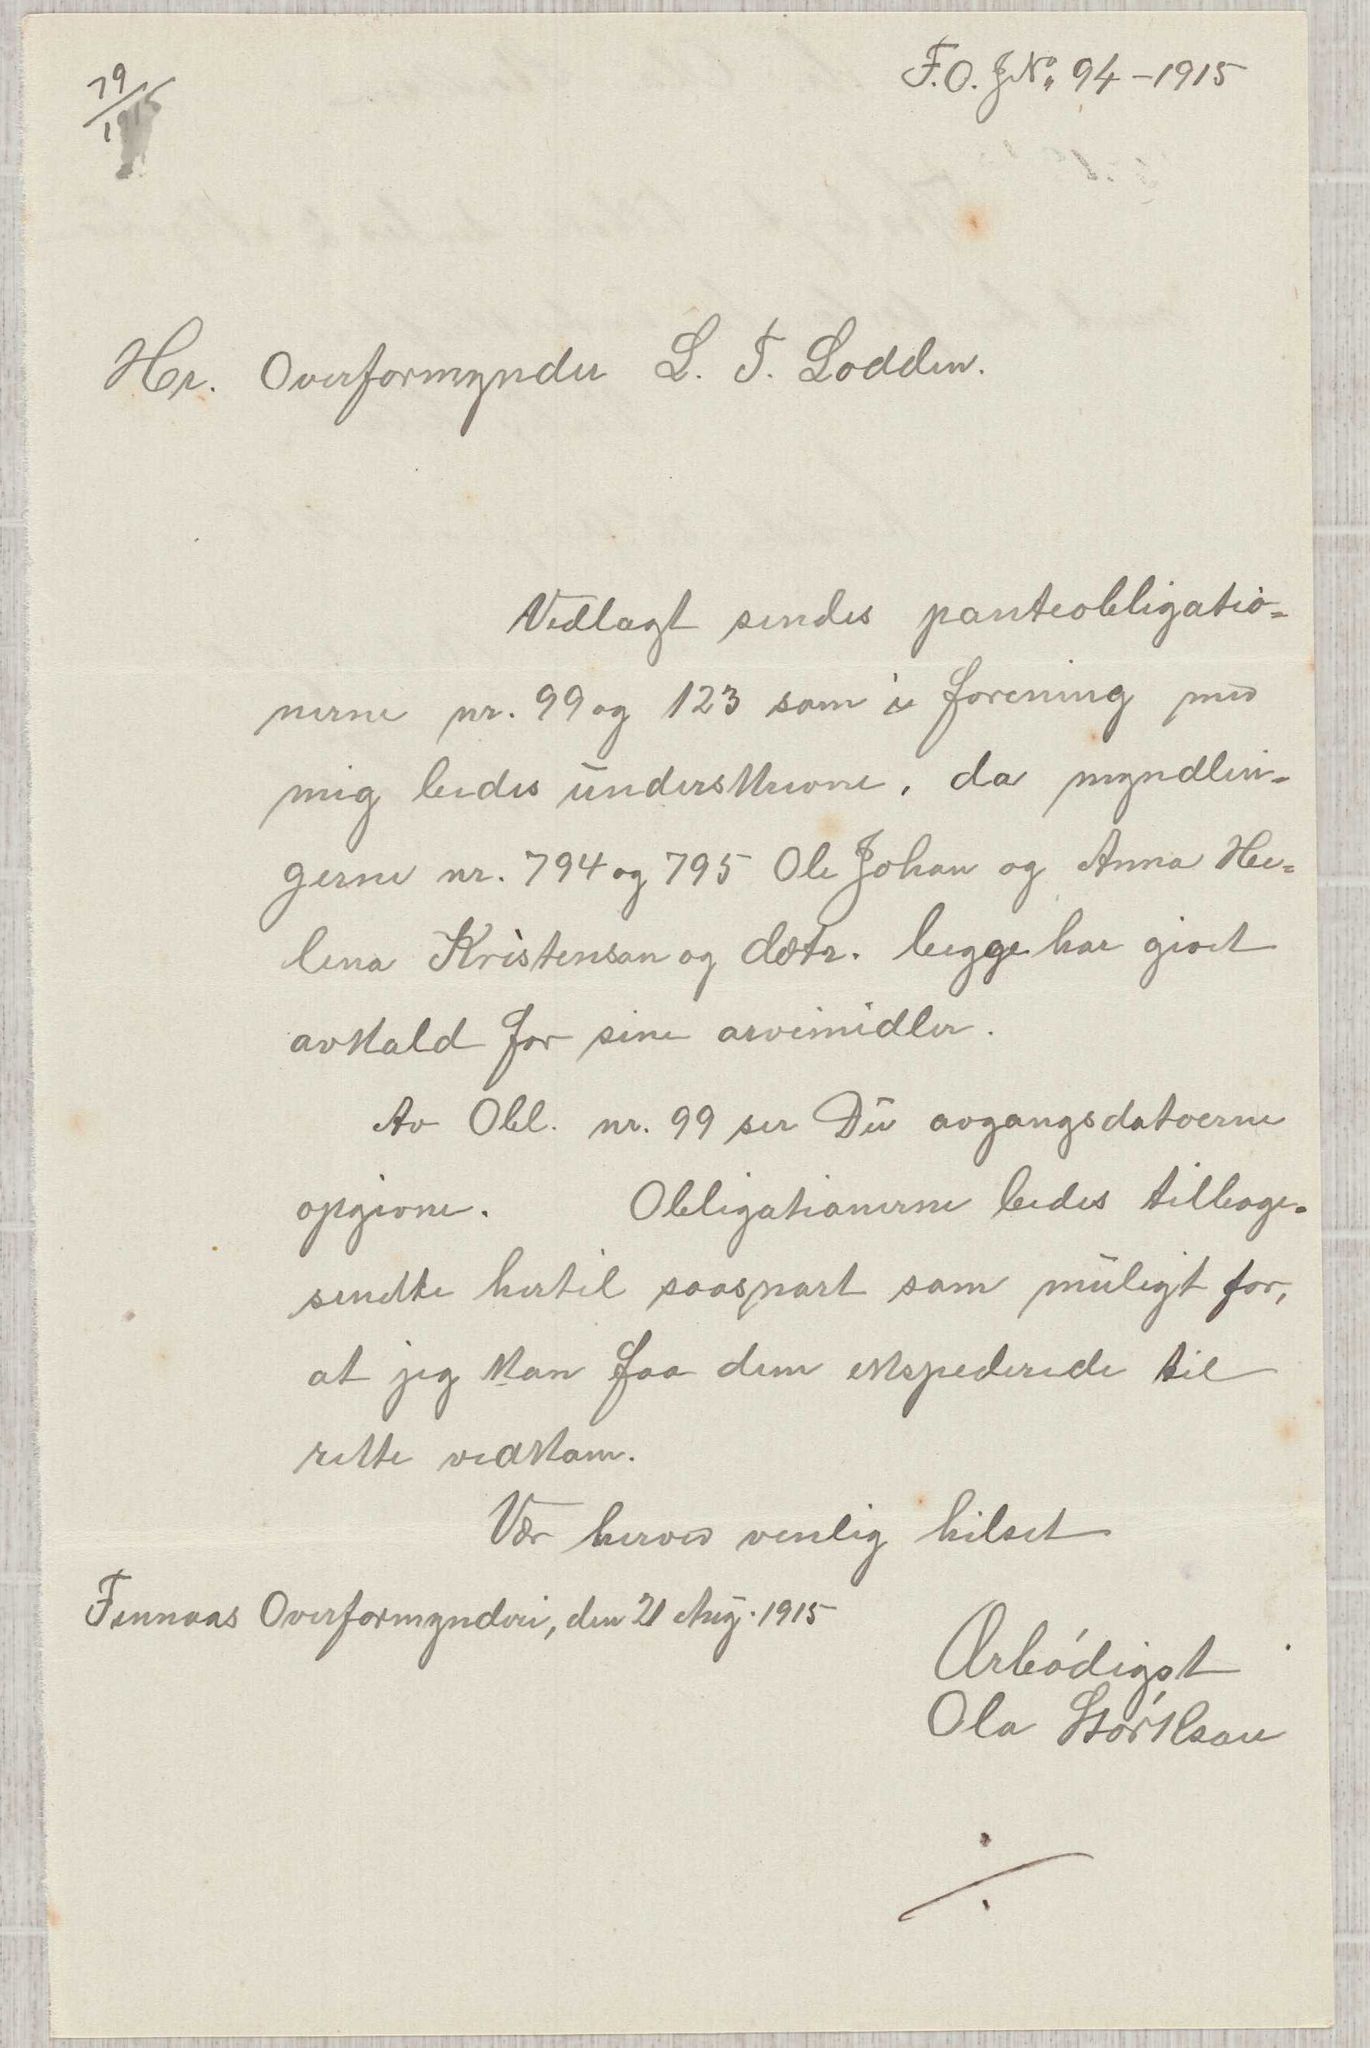 79
F.O. J.No. 94 - 1915
Hr. Overformynder L. T. Lodden.
Vedlagt sendes panteobligatio-
nerne nr. 99 og 123 som i forening med
mig bedes underskrevne, da myndlin-
gerne nr. 794 og 795 Ole Johan og Anna He-
lena Kristenson og dotr. begge har givet
avkald for sine arvemidler.
Av Obl. nr. 99 ser Du avgangsdatoerne
opgivne. Obligationerne bedes tilbage-
sendte hertil saasnart som muligt for,
at jeg kan faa dem ekspederede til
rette vedkom.
Vær herved venlig hilset
Finnaas Overformynderi, den 21 Aug. 1915
Ærbødigst
Ola